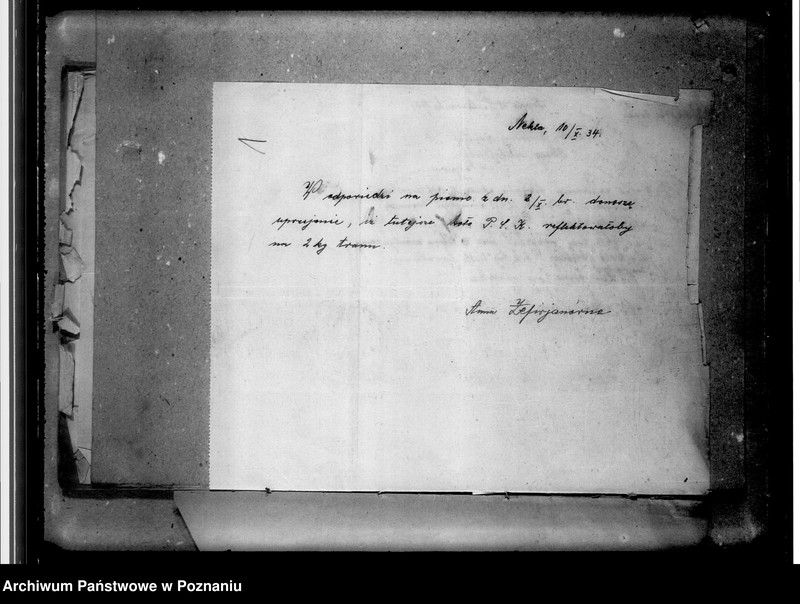 Nekla, 10/X. 34.
W odpowiedzi na pismo z dn. 2/X. br. donoszę
uprzejmie, iż tutejsze koło P. C. K. reflektowałoby
na 2 kg tranu.
Anna Zefirjanówna
Archiwum Państwowe w Poznaniu